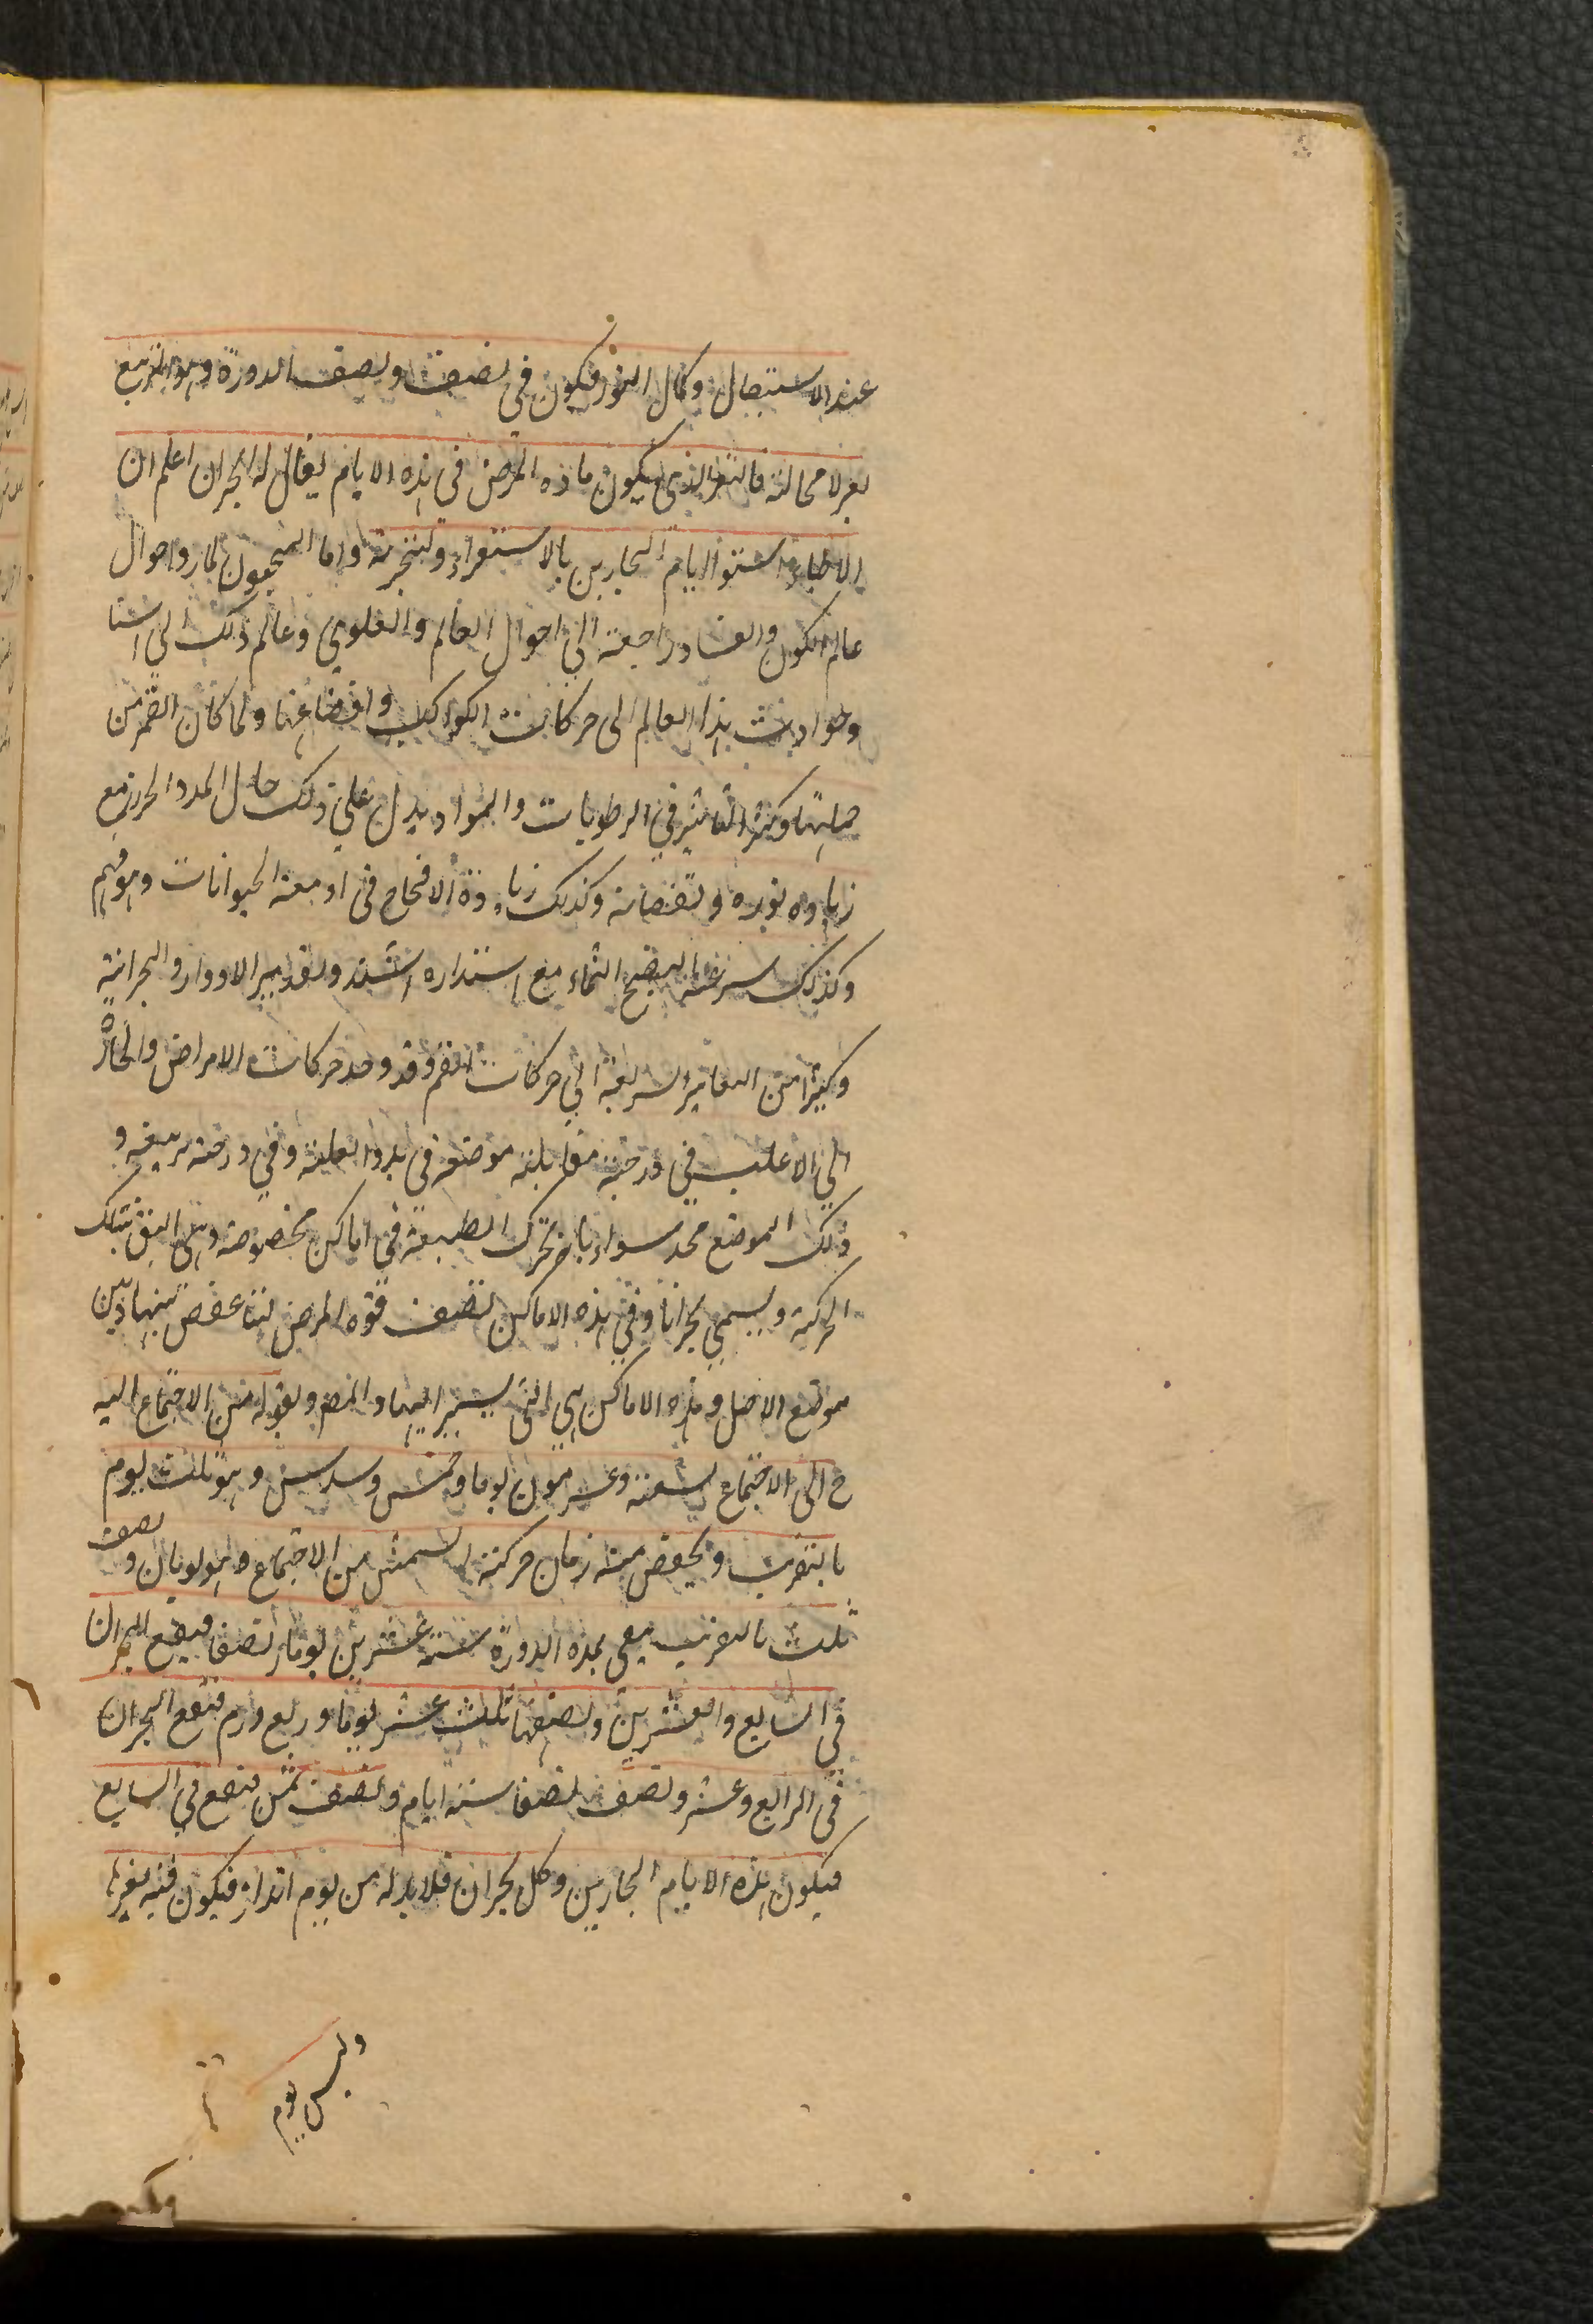 عند الاستقبال وكمال النور فيكون في نصف ونصف الدورة وهو التربيع
بغر لا محالة فالتغر الذي يكون ماده المرض في هذه الايام يقال له البحران اعلم ان
الاطباء استنوا ايام البحارين بالاستقراء والتجربة واما المنجمون لما روا احوال
عالم الكون والفساد راجعة الى احوال العالم والعلوي وعالم ذلك الى اشيا
وحوادث هذا العالم الى حركات الكواكب واوضاعها ولما كان القمر من
جملتها وكثير التاثير في الرطوبات والمواد يدل على ذلك حال المد والجزر مع
زياده نوره ونقصانه وكذلك زيادة الامخاخ في ادمغة الحيوانات
وكذلك سرعة النضج الثماء مع استداره اشتد وتقدير الادوار والبحرانية
وكثيرا من التغاير السريعة الى حركات القمر وقد وجد حركات الامراض والحارة
الى الاغلب في درجته مقابلة موضعه في بدو العلة وفي درجة تربيعه و
ذلك الموضع محد سواء باخ تحرك الطبيعة في اماكن مخصوصة وهى اليق بتلك
الحركة ويسمى بحرانا وفي هذه الاماكن تضعف قوة المرض لتناقض بينها وبين
موضع الاصل وهذه الاماكن هى التى يشير اليها والمض وبقوله من الاجتماع اليه
خ الى الاجتماع تسعة وعشرون يوما وخمس وسدس وهو ثلث يوم
بالتقريب وينقص منه زمان حركته الشمس من الاجتماع وهو يومان ونصف
ثلث بالتقريب يبقى بمده الدورة ستة عشرين يوما ونصفا فيقع البحران
في السابع والعشرين ونصفها ثلث عشر يوما وربع ورم فيقع البحران
في الرابع وعشر ونصف نصفا ستة ايام ونصف ثمن فيقع في السابع
فيكون هذه الايام البحارين وكل بحران فلا بد له من يوم انذار فيكون فيه
وليس يوم